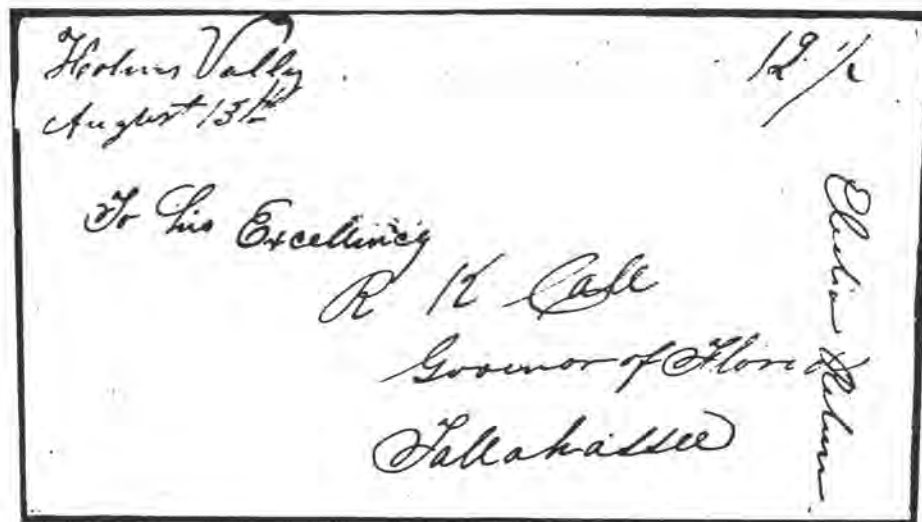 Holms Vally
August 13th
12 1/2
To his Excellincy
R K Call
Govornor of Florid
Tallahassee
Election Return